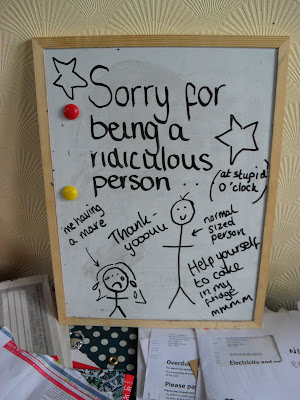 Sorry for
being a
ridiculous
person
(at stupid
o'clock)
me having
a mare
Thank-
yooouu
normal
sized
person
Help yourself
to cake
in my
fridge
mmmm
Overdu
Please pa
Electricity and